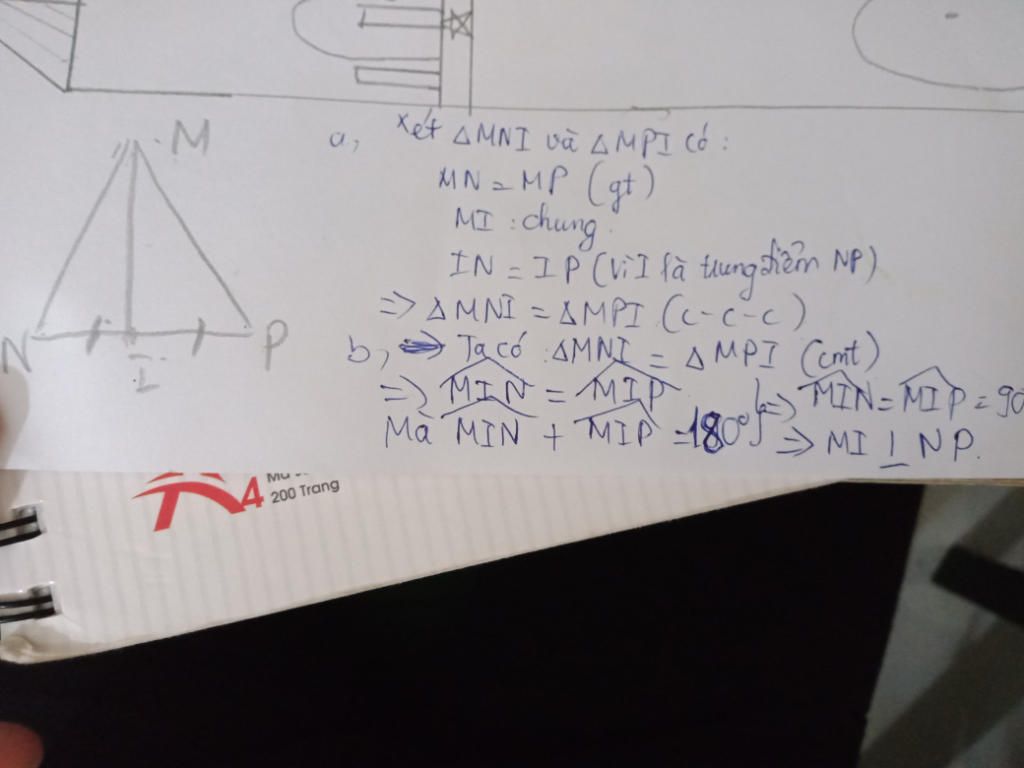 M
N
P
I
a, Xét ΔMNI và ΔMPI có:
MN = MP (gt)
MI : chung
IN = IP (vì I là trung điểm NP)
=> ΔMNI = ΔMPI (c-c-c)
b, Ta có : ΔMNI = ΔMPI (cmt)
=> MIN = MIP
Mà MIN + MIP = 180° } => MIN = MIP = 90
=> MI ⊥ NP.
4
200 Trang